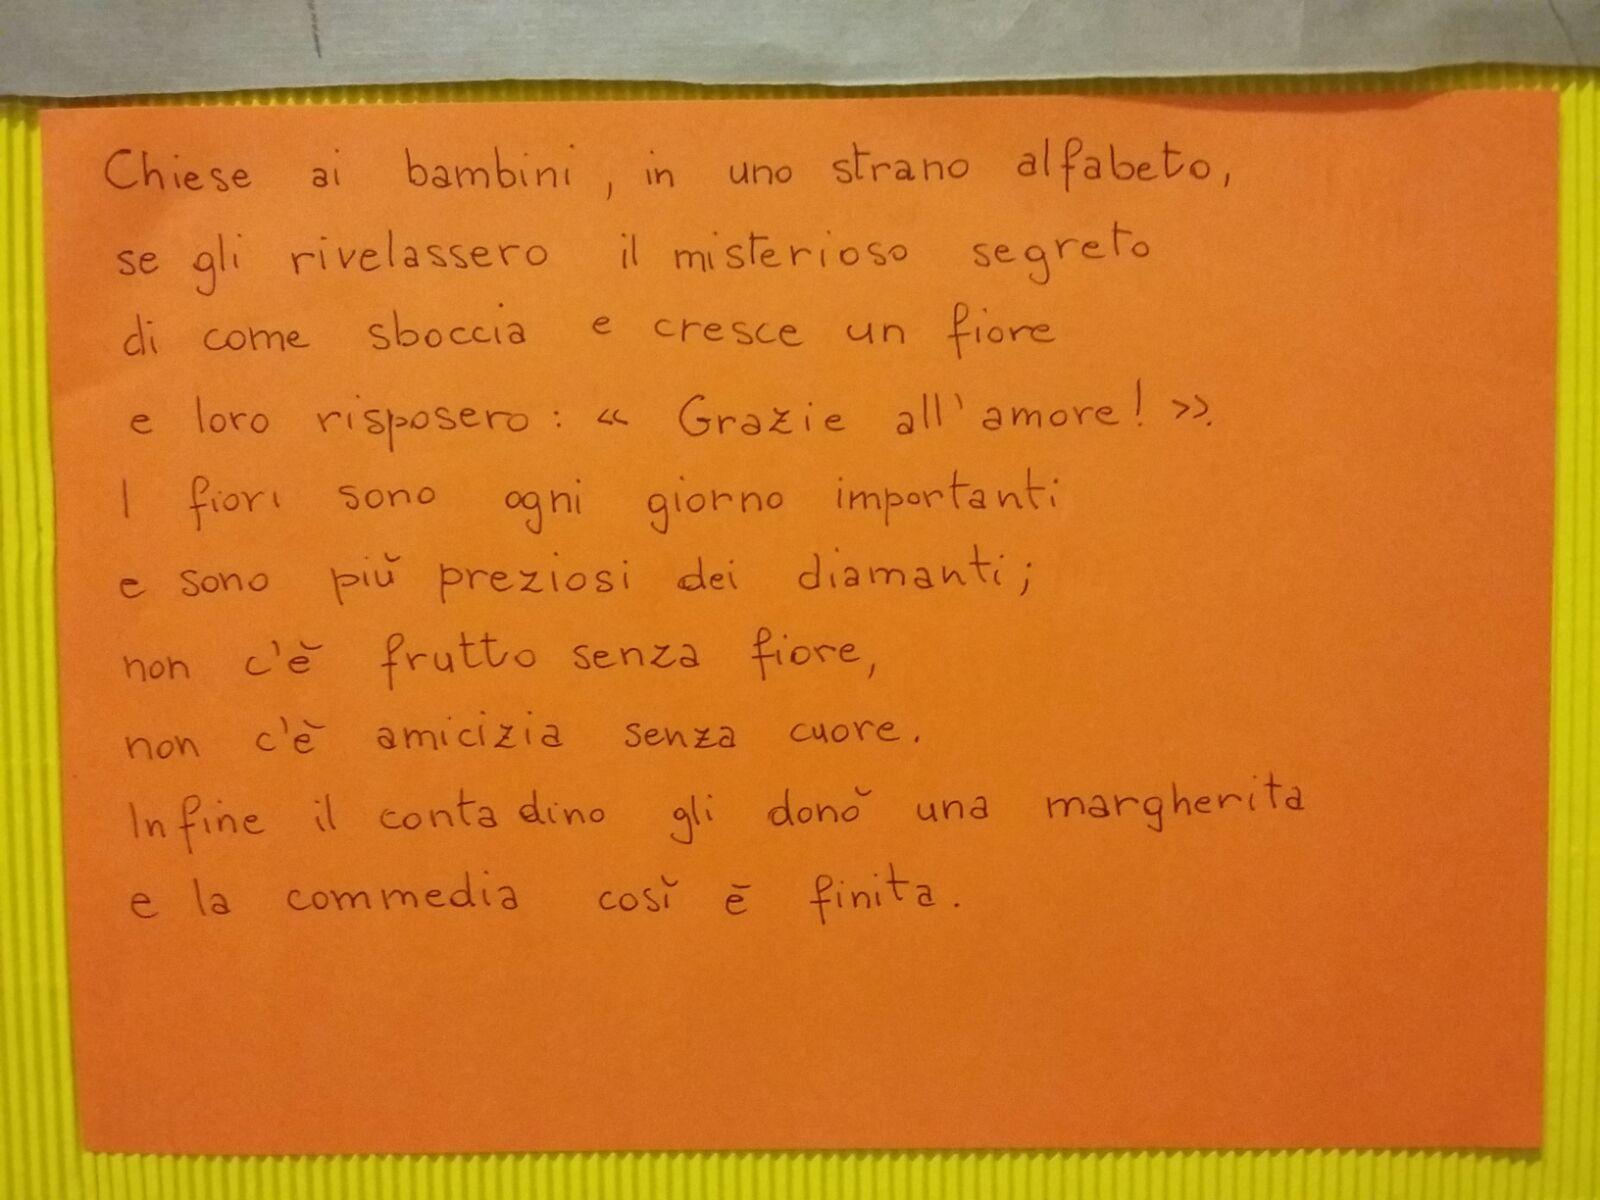 Chiese ai bambini, in uno strano alfabeto,
se gli rivelassero il misterioso segreto
di come sboccia e cresce un fiore
e loro risposero: « Grazie all'amore! ».
I fiori sono ogni giorno importanti
e sono più preziosi dei diamanti;
non c'è frutto senza fiore,
non c'è amicizia senza cuore.
Infine il contadino gli donò una margherita
e la commedia così è finita.